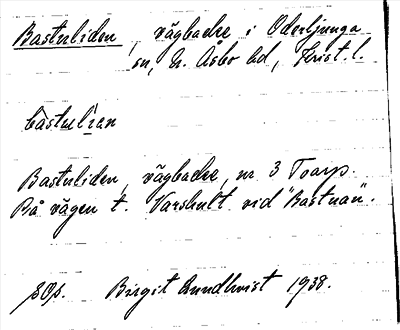 Bastuliden, vägbacke i Oderljunga
sn, N. Åsbo hd, Krist. l.
bàstul`ian
Bastuliden, vägbacke, nr 3 Toarp.
På vägen t. Varshult vid "Bastuan".
Birgit Rundkvist 1938.